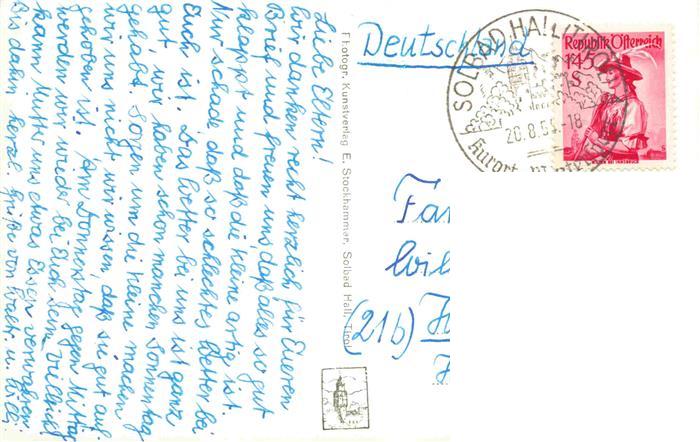 Liebe Eltern!
Wir danken recht herzlich für Eueren
Brief und freuen uns, daß alles so gut
klappt und daß die Kleine artig ist.
Nur schade, daß so schlechtes Wetter bei
Euch ist. Das Wetter bei uns ist ganz
gut, wir haben schon manchen Sonnentag
gehabt. Sorgen um die Kleine machen
wir uns nicht, wir wissen, daß sie gut auf
gehoben ist. Am Donnerstag gegen Mittag
werden wir wieder bei Euch sein. Vielleicht
kann Mutter uns etwas Essen verwahren.
Bis dahin herzl. Grüße von
Photogr. Kunstverlag E. Stockhammer, Solbad Hall, Tirol
Deutschland
SOLBAD HALL
20.8.5 -18
Kurort
Republik Österreich
1.45
S
(21b)